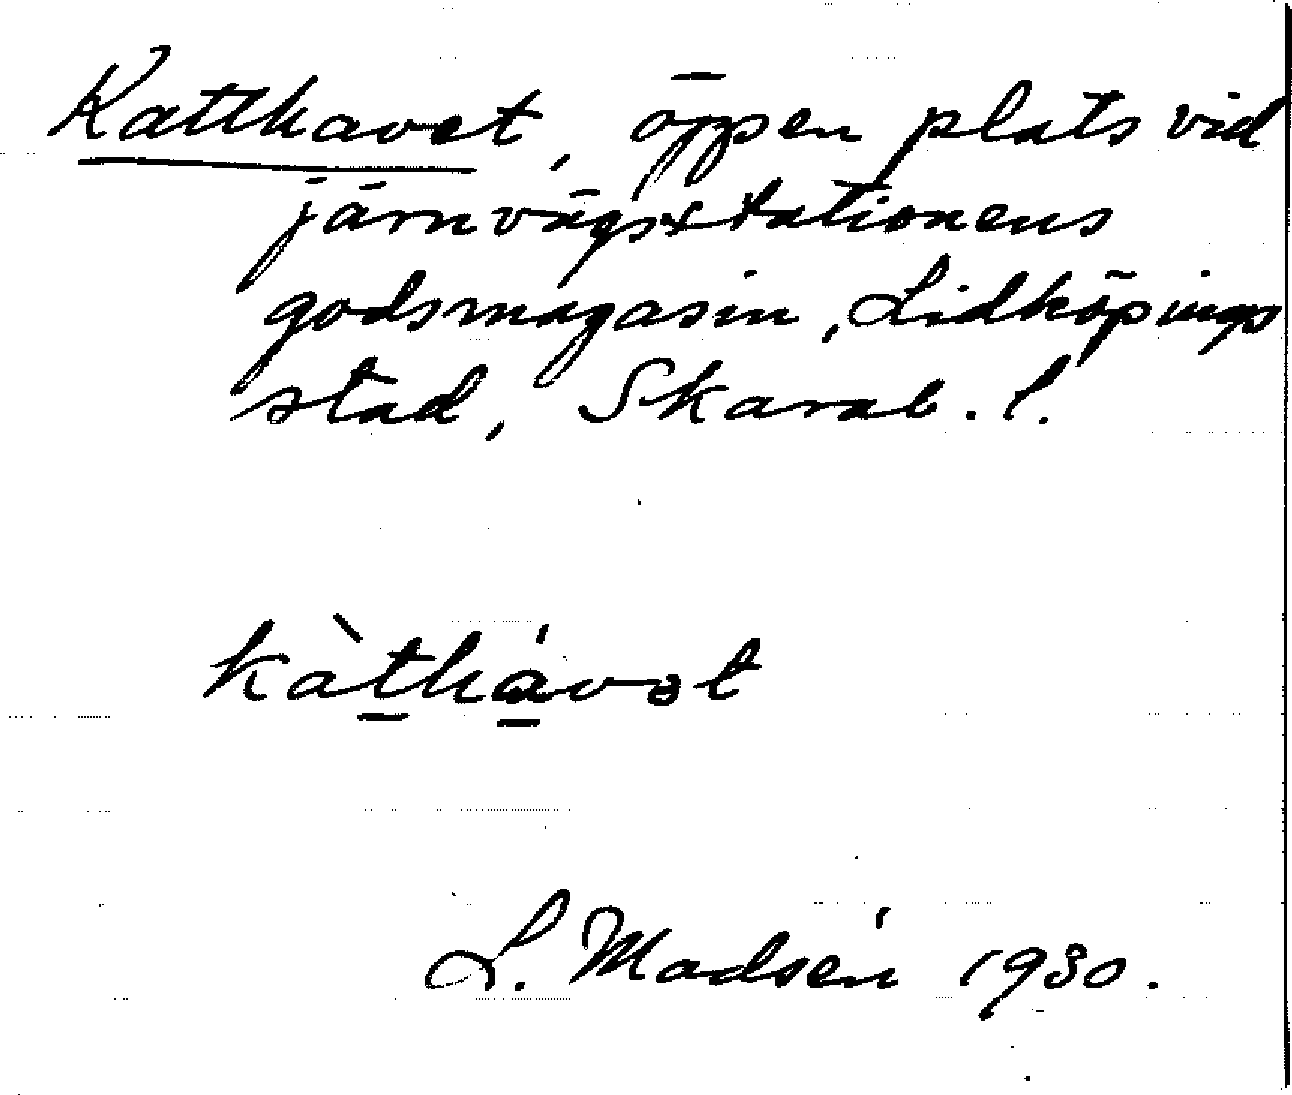 Katthavet, öppen plats vid
järnvägsstationens
godsmagasin, Lidköpings
stad, Skarab. l.
kàthávət
L. Madsén 1930.